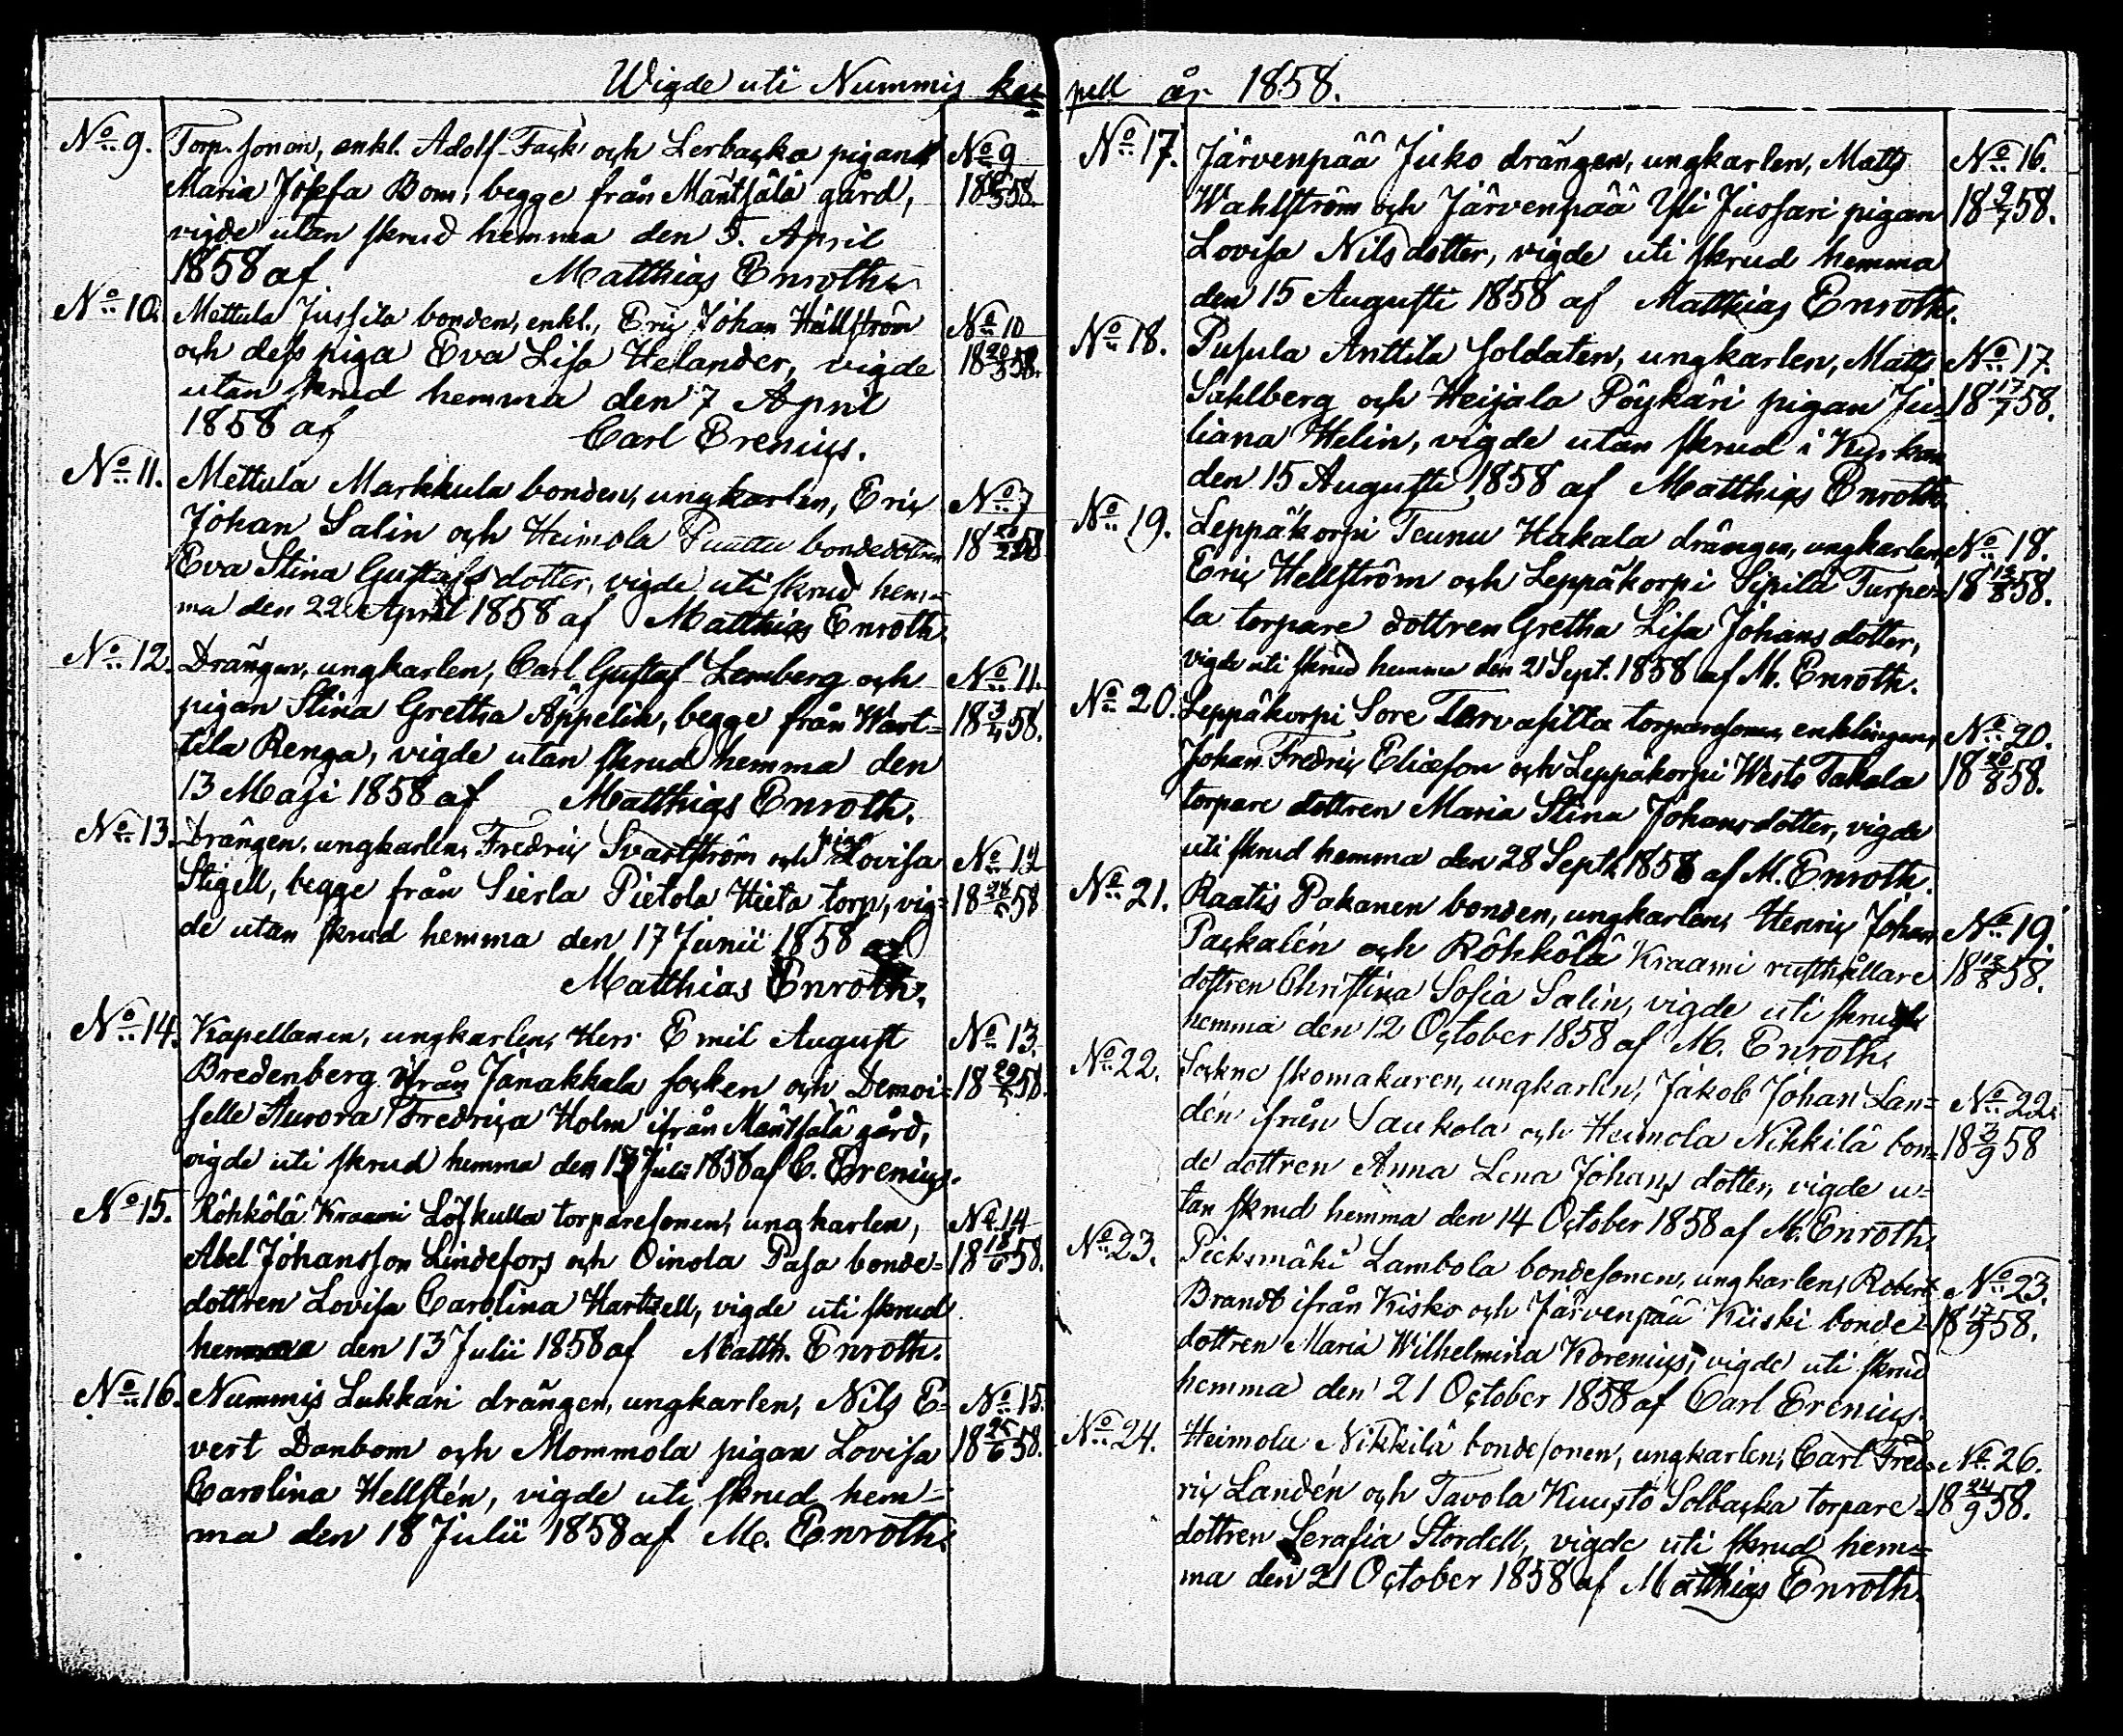 Wigde uti Nummis ka=pell år 1858.
No 9. Torp. sonen, enkl. Adolf Fack och Lerbacka pigan No 9
Maria Josefa Bom, begge från Mäntsälä gård, 18 58.
vigde utan skrud hemma den 5. April
1858 af Matthias Enroth.
No 10. Mettula Jussila bonden, enkl., Eric Johan Hällström No 10
och dess piga Eva Lisa Helander, vigde 18 20/3 58.
utan skrud hemma den 7 April
1858 af Carl Erenius.
No 11. Mettula Markkula bonden, ungkarlen, Eric No 7
Johan Salin och Heimola bondedottren 18 58
Eva Stina Gustafs dotter, vigde uti skrud hem=
ma den 22 April 1858 af Matthias Enroth.
No 12. Drängen, ungkarlen, Carl Gustaf Lemberg och No 11.
pigan Stina Gretha Äppelin, begge från Wart= 18 3/4 58.
tila Renga, vigde utan skrud hemma den
13 Maji 1858 af Matthias Enroth.
No 13. Drängen, ungkarlen, Fredric Svartström och pig. Lovisa No 12
Stigell, begge från Sierla Pietola Hieta torp, vig= 18 58
de utan skrud hemma den 17 Junii 1858 af
Matthias Enroth.
No 14. Kapellanen, ungkarlen, Herr Emil August No 13.
Bredenberg ifrån Janakkala socken och Demoi= 18 58.
selle Aurora Fredrica Holm ifrån Mäntsälä gård,
vigde uti skrud hemma den 13 Juli 1858 af C. Erenius.
No 15. Röhkölä Kraami Löfkulla torparesonen, ungkarlen, No 14
Abel Johansson Lindefors och Oinola Pasa bonde= 18 18/6 58.
dottren Lovisa Carolina Hartzell, vigde uti skrud
hemma den 13 Julii 1858 af Matth. Enroth.
No 16. Nummis Lukkari drängen, ungkarlen, Nils E= No 15.
vert Danbom och Mommola pigan Lovisa 18 25/6 58.
Carolina Hellstén, vigde uti skrud hem=
ma den 18 Julii 1858 af M. Enroth.
No 17. Järvenpää Juko drängen, ungkarlen, Matts No 16.
Wahlström och Järvenpää Yli Jussari pigan 18 9/7 58.
Lovisa Nils dotter, vigde uti skrud hemma
den 15 Augusti 1858 af Matthias Enroth.
No 18. Pusula Anttila soldaten, ungkarlen, Matts No 17.
Sahlberg och Heijala Pöykäri pigan Ju= 18 17/7 58.
liana Helin, vigde utan skrud i Kyrkan
den 15 Augusti 1858 af Matthias Enroth.
No 19. Leppäkorpi Teunu Hakala drängen, ungkarlen, No 18.
Eric Hellström och Leppäkorpi Sipilä Turpe= 18 58.
la torpare dottren Gretha Lisa Johans dotter,
vigde uti skrud hemma den 21 Sept. 1858 af M. Enroth.
No 20. Leppäkorpi Sore Tervasilta torparesonen, enklingen, No 20.
Johan Fredric Eliæson och Leppäkorpi Westo Takala 18 20/8 58.
torpare dottren Maria Stina Johansdotter, vigde
uti skrud hemma den 28 Sept. 1858 af M. Enroth.
No 21. Raatis Pakanen bonden, ungkarlen, Henric Johan No 19.
Packalén och Röhkölä Kraami rusthållare 18 58.
dottren Christina Sofia Salin, vigde uti skrud
hemma den 12 October 1858 af M. Enroth.
No 22. Sockne skomakaren, ungkarlen, Jakob Johan Lan= No 22.
dén ifrån Saukola och Heimola Nikkilä bon= 18 3/9 58
de dottren Anna Lena Johans dotter, vigde u=
tan skrud hemma den 14 October 1858 af M. Enroth.
No 23. Pieksmäki Lambola bondesonen, ungkarlen, Robert No 23.
Brandt ifrån Kisko och Järvenpää Kiiski bonde= 18 17/9 58.
dottren Maria Wilhelmina Korenius, vigde uti skrud
hemma den 21 October 1858 af Carl Erenius.
No 24. Heimola Nikkilä bondesonen, ungkarlen, Carl Fred= No 26.
ric Landén och Tavola Kuusto Solbacka torpare= 18 24/9 58.
dottren Serafia Stordell, vigde uti skrud hem=
ma den 21 October 1858 af Matthias Enroth.